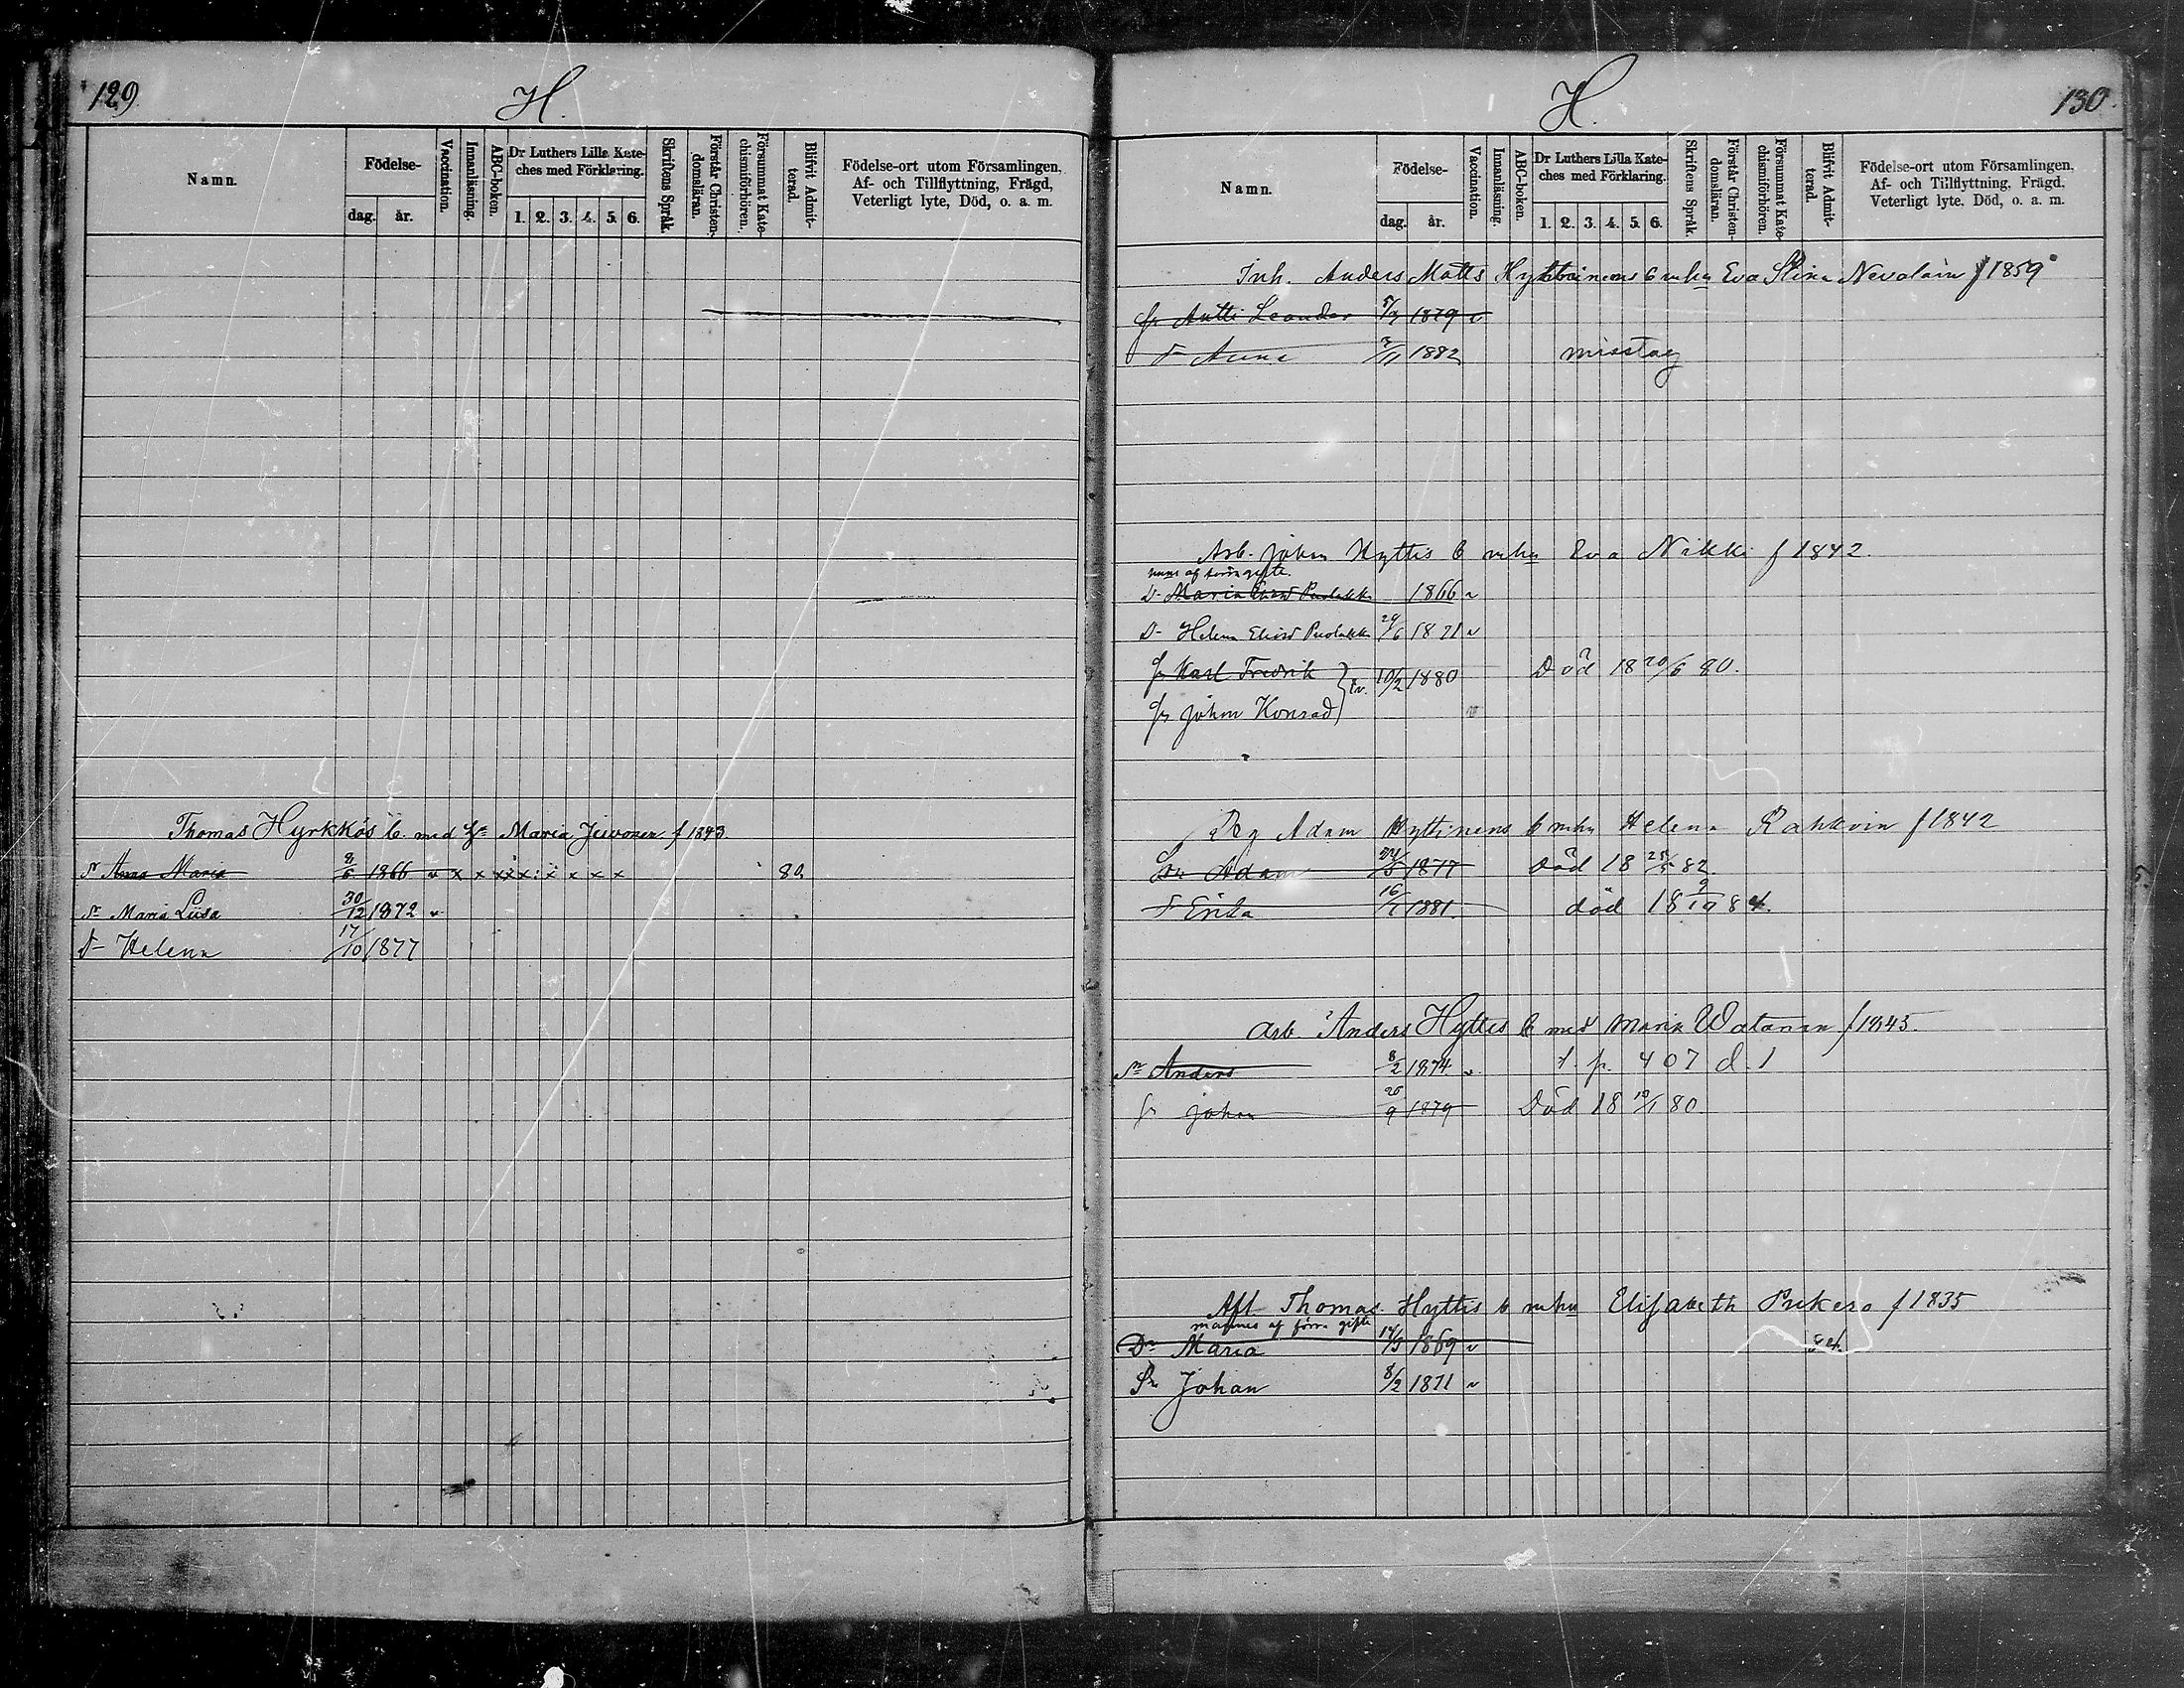 129
H.
Namn.
Födelse-
dag. år.
Vaccination.
Innanläsning.
ABC-boken.
Dr Luthers Lilla Kate-
ches med Förklaring.
1. 2. 3. 4. 5. 6.
Skriftens Språk.
Förstår Christen-
domsläran.
Försummat Kate-
chismiförhören.
Blifvit Admit-
terad.
Födelse-ort utom Församlingen,
Af- och Tillflyttning, Frägd,
Veterligt lyte, Död, o. a. m.
Thomas Hyrkkös b. med Maria Jeivonen f 1843
Anna Maria 8/6 1866 v x x x x : x x x x 80
Maria Liisa 30/12 1872 v
Helena 17/10 1877
H.
130
Namn.
Födelse-
dag. år.
Vaccination.
Innanläsning.
ABC-boken.
Dr Luthers Lilla Kate-
ches med Förklaring.
1. 2. 3. 4. 5. 6.
Skriftens Språk.
Förstår Christen-
domsläran.
Försummat Kate-
chismiförhören.
Blifvit Admit-
terad.
Födelse-ort utom Församlingen,
Af- och Tillflyttning, Frägd,
Veterligt lyte. Död, o. a. m.
Inh. Anders Matts b mhu Eva Stina Nevalain f 1859
Antti Leander 5/7 1879 v
Anna 1882 misstag
Arb. Johan Hyttis b mhu Eva Nikki f 1842.
af förra gifte
D. Maria 1866 v
D. Helena 1871 v
Karl Fredrik 10/2 1880 Död 18 20/6 80.
Johan Konrad v
Adam Hyttinens b mhu Helena f 1842
Adam 1877 Död 18 82
Erika 16/1 1881 död 18 84.
Arb. Anders Hyttis b med Maria Watanen f 1845.
Sn Anders 8/2 1874 v t. p. 407 d. 1
Johan 9 1879 Död 18 80
Thomas Hyttis b mhu Elisabeth Pukero f 1835
mannes af förra gifte
Dr Maria 1869 v 84
Sn Johan 8/2 1871 v